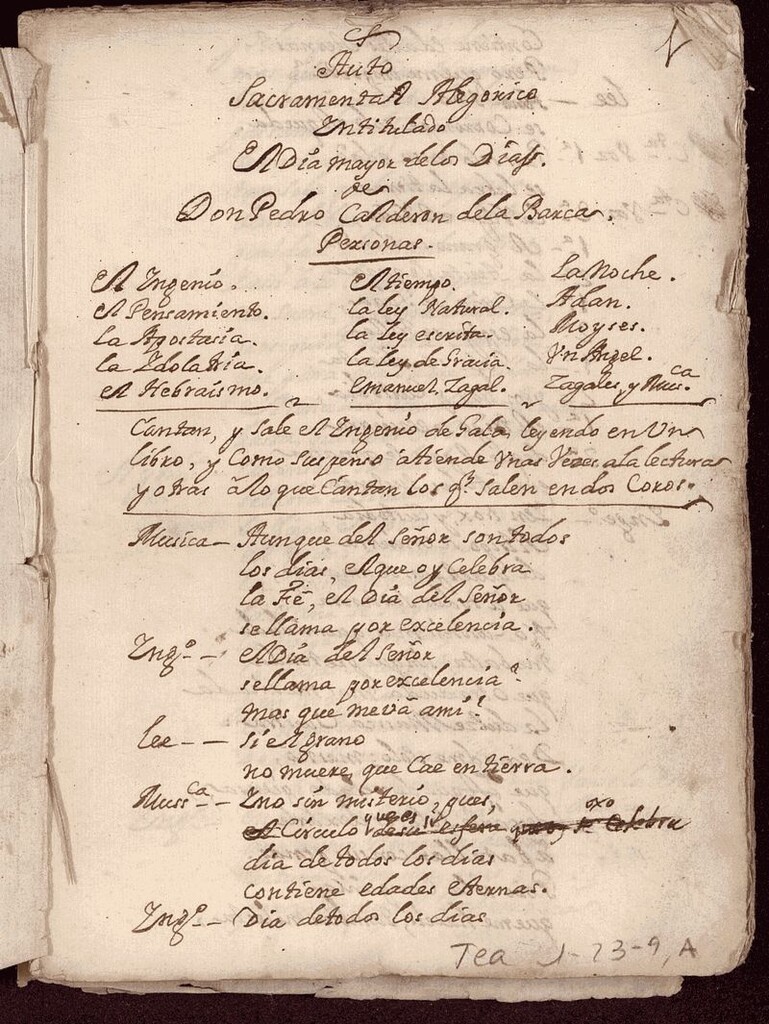 Auto
Sacramental Alegorico
Intitulado
El Dia mayor delos Dias.
de
Don Pedro Calderon dela Barca.
Personas.
El Ingenio. El tiempo. La Noche.
el Pensamiento. la ley Natural. Adan.
la Apostasia. la Ley escrita. Moyses.
la Idolatria. la Ley de Gracia. Vn Angel.
el Hebraismo. Emanuel, Zagal. Zagales, y Mus.ca
Cantan, y Sale el Ingenio de Gala, leyendo en Vn
libro, y Como suspenso atiende Vnas Vezes ala lectura
y otras à lo que Cantan los q.e salen en dos Coros.
Musica — Aunque del Señor son todos
los dias, el que oy Celebra
la Fè, el Dia del Señor
se llama por excelencia.
Ing.o — el Dia del Señor
se llama por excelencia?
mas que me và a mi?
lee — — Si el grano
no muere, que Cae en tierra.
Muss.ca — Y no sin misterio, pues,
el Circulo
dia de todos los dias
contiene edades eternas.
Ing.o — Dia de todos los dias
Tea 1-23-9, A